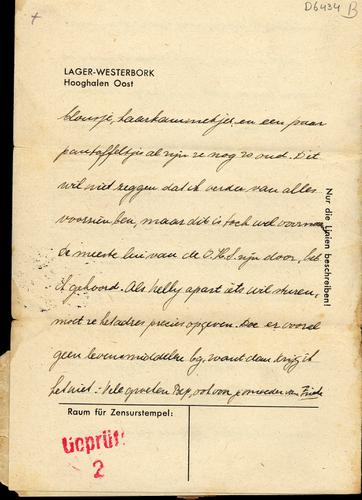 D6434 B
LAGER-WESTERBORK
Hooghalen Oost
blousje, haarkammetje, en een paar
pantoffeltjes al zijn ze nog zo oud. Dit
wil niet zeggen dat ik verder van alles
voorzien ben, maar dit is toch wel
de meeste lui van de O.H.S. zijn door, heb
ik gehoord. Als Nelly apart iets wil sturen,
moet ze het adres precies opgeven. Doe er vooral
geen levensmiddelen bij, want dan krijg ik
het niet. Vele groeten Bep, ook voor je moeder van
Nur die Linien beschreiben!
Raum für Zensurstempel:
Geprüft
2